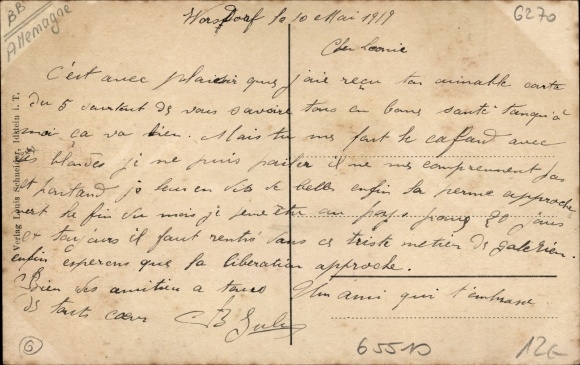 BB
Allemagne
6270
Worsdorf le 10 Mai 1919
Cher Leonie
C'est avec plaisir que j'aie reçu ton aimable carte
du 5 surtout de vous savoire tous en bone santé tanqu'à
moi ça va bien. Mais tu me fait le cafard avec
les blondes je ne puis parler il ne me comprennent pas
et pourtand je leur en dit de belles enfin la perme approche
vert la fin du mois je peut être au pays pour 20 jours
et toujours il faut rentré dans ce triste metier de galérien.
enfin esperons que la libération approche.
Bien des amitiés a tous
Un ami qui t'embrasse
de tout cœur
B Jules
Verlag Louis Schneider, Idstein i. T.
6
6551D
12€